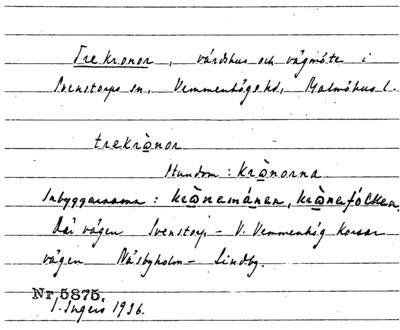 Tre Kronor, värdshus och vägmöte i
Svenstorps sn, Vemmenhögs hd, Malmöhus l.
trekrò̲nor
stundom: krò̲norna
Inbyggarnamn: krò̲nemánen, krò̲nefólken.
Där vägen Svenstorp – V. Vemmenhög korsar
vägen Näsbyholm – Lindby.
Nr. 5875.
I. Ingers 1936.